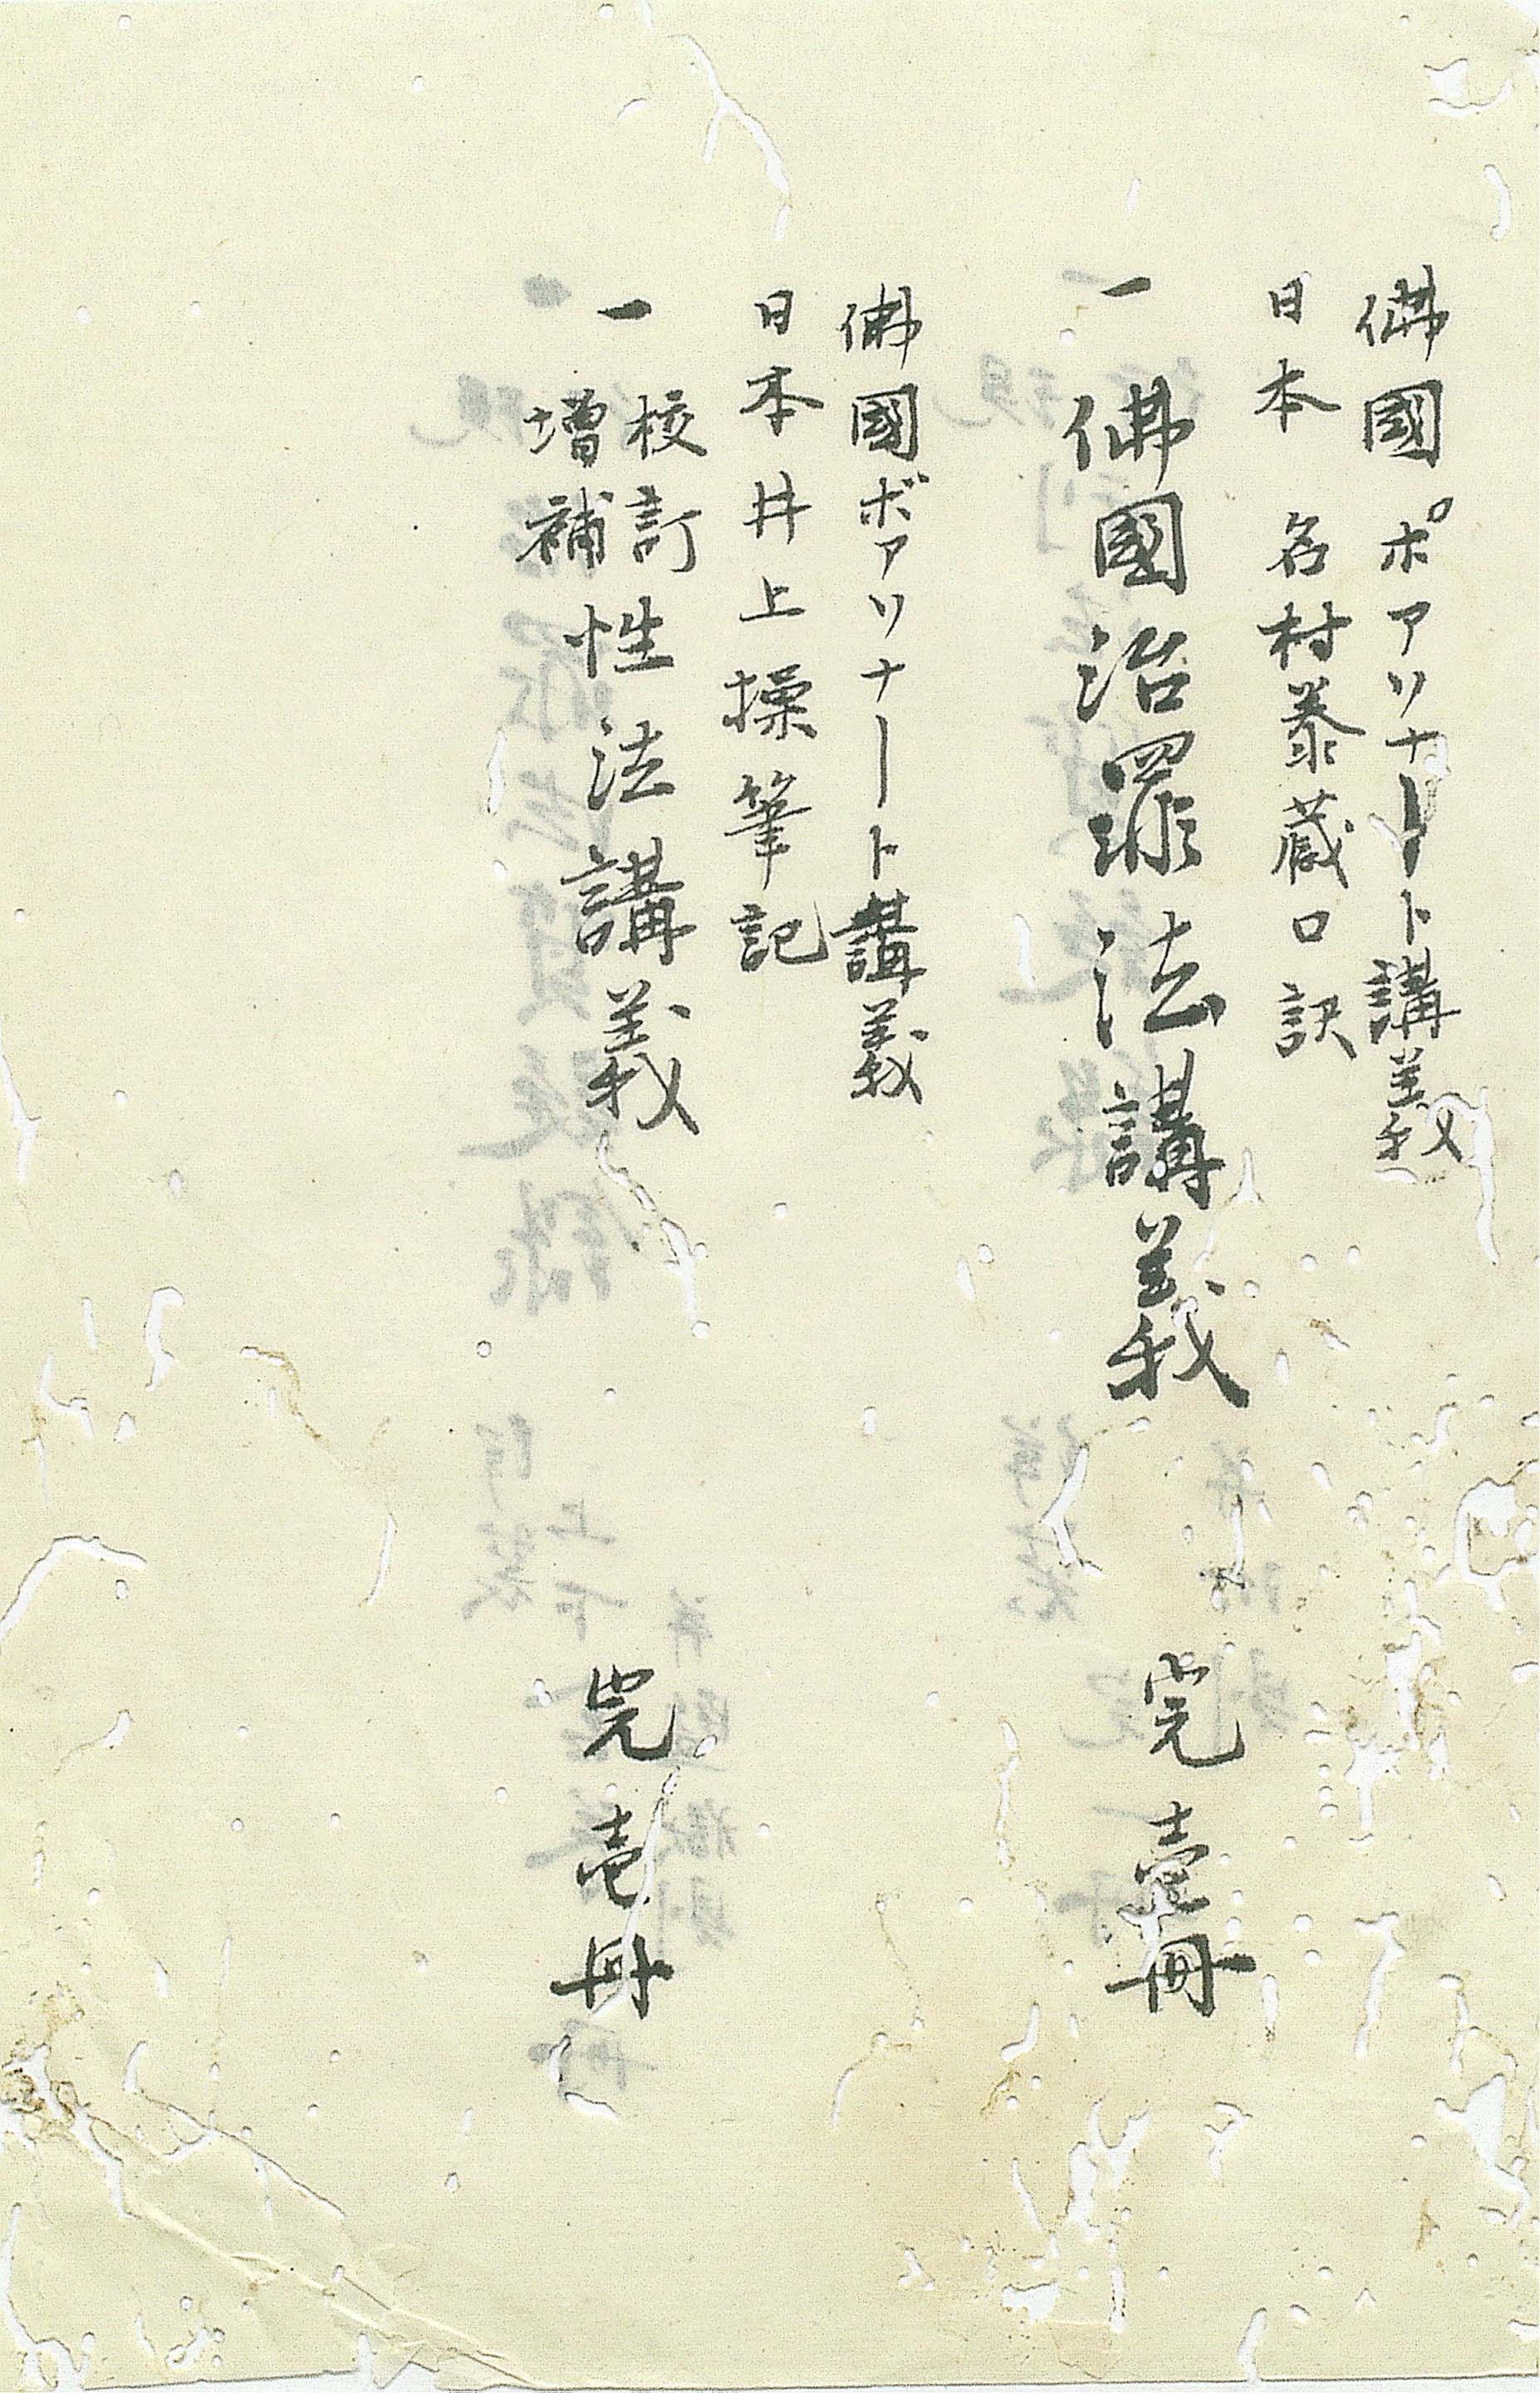 佛國 ポアリナード講義
日本 名村泰蔵口訳
一 佛國治罪法講義 完壹冊
佛國ボアリナード講義
日本井上操筆記
一 校訂増補 性法講義 完壱冊